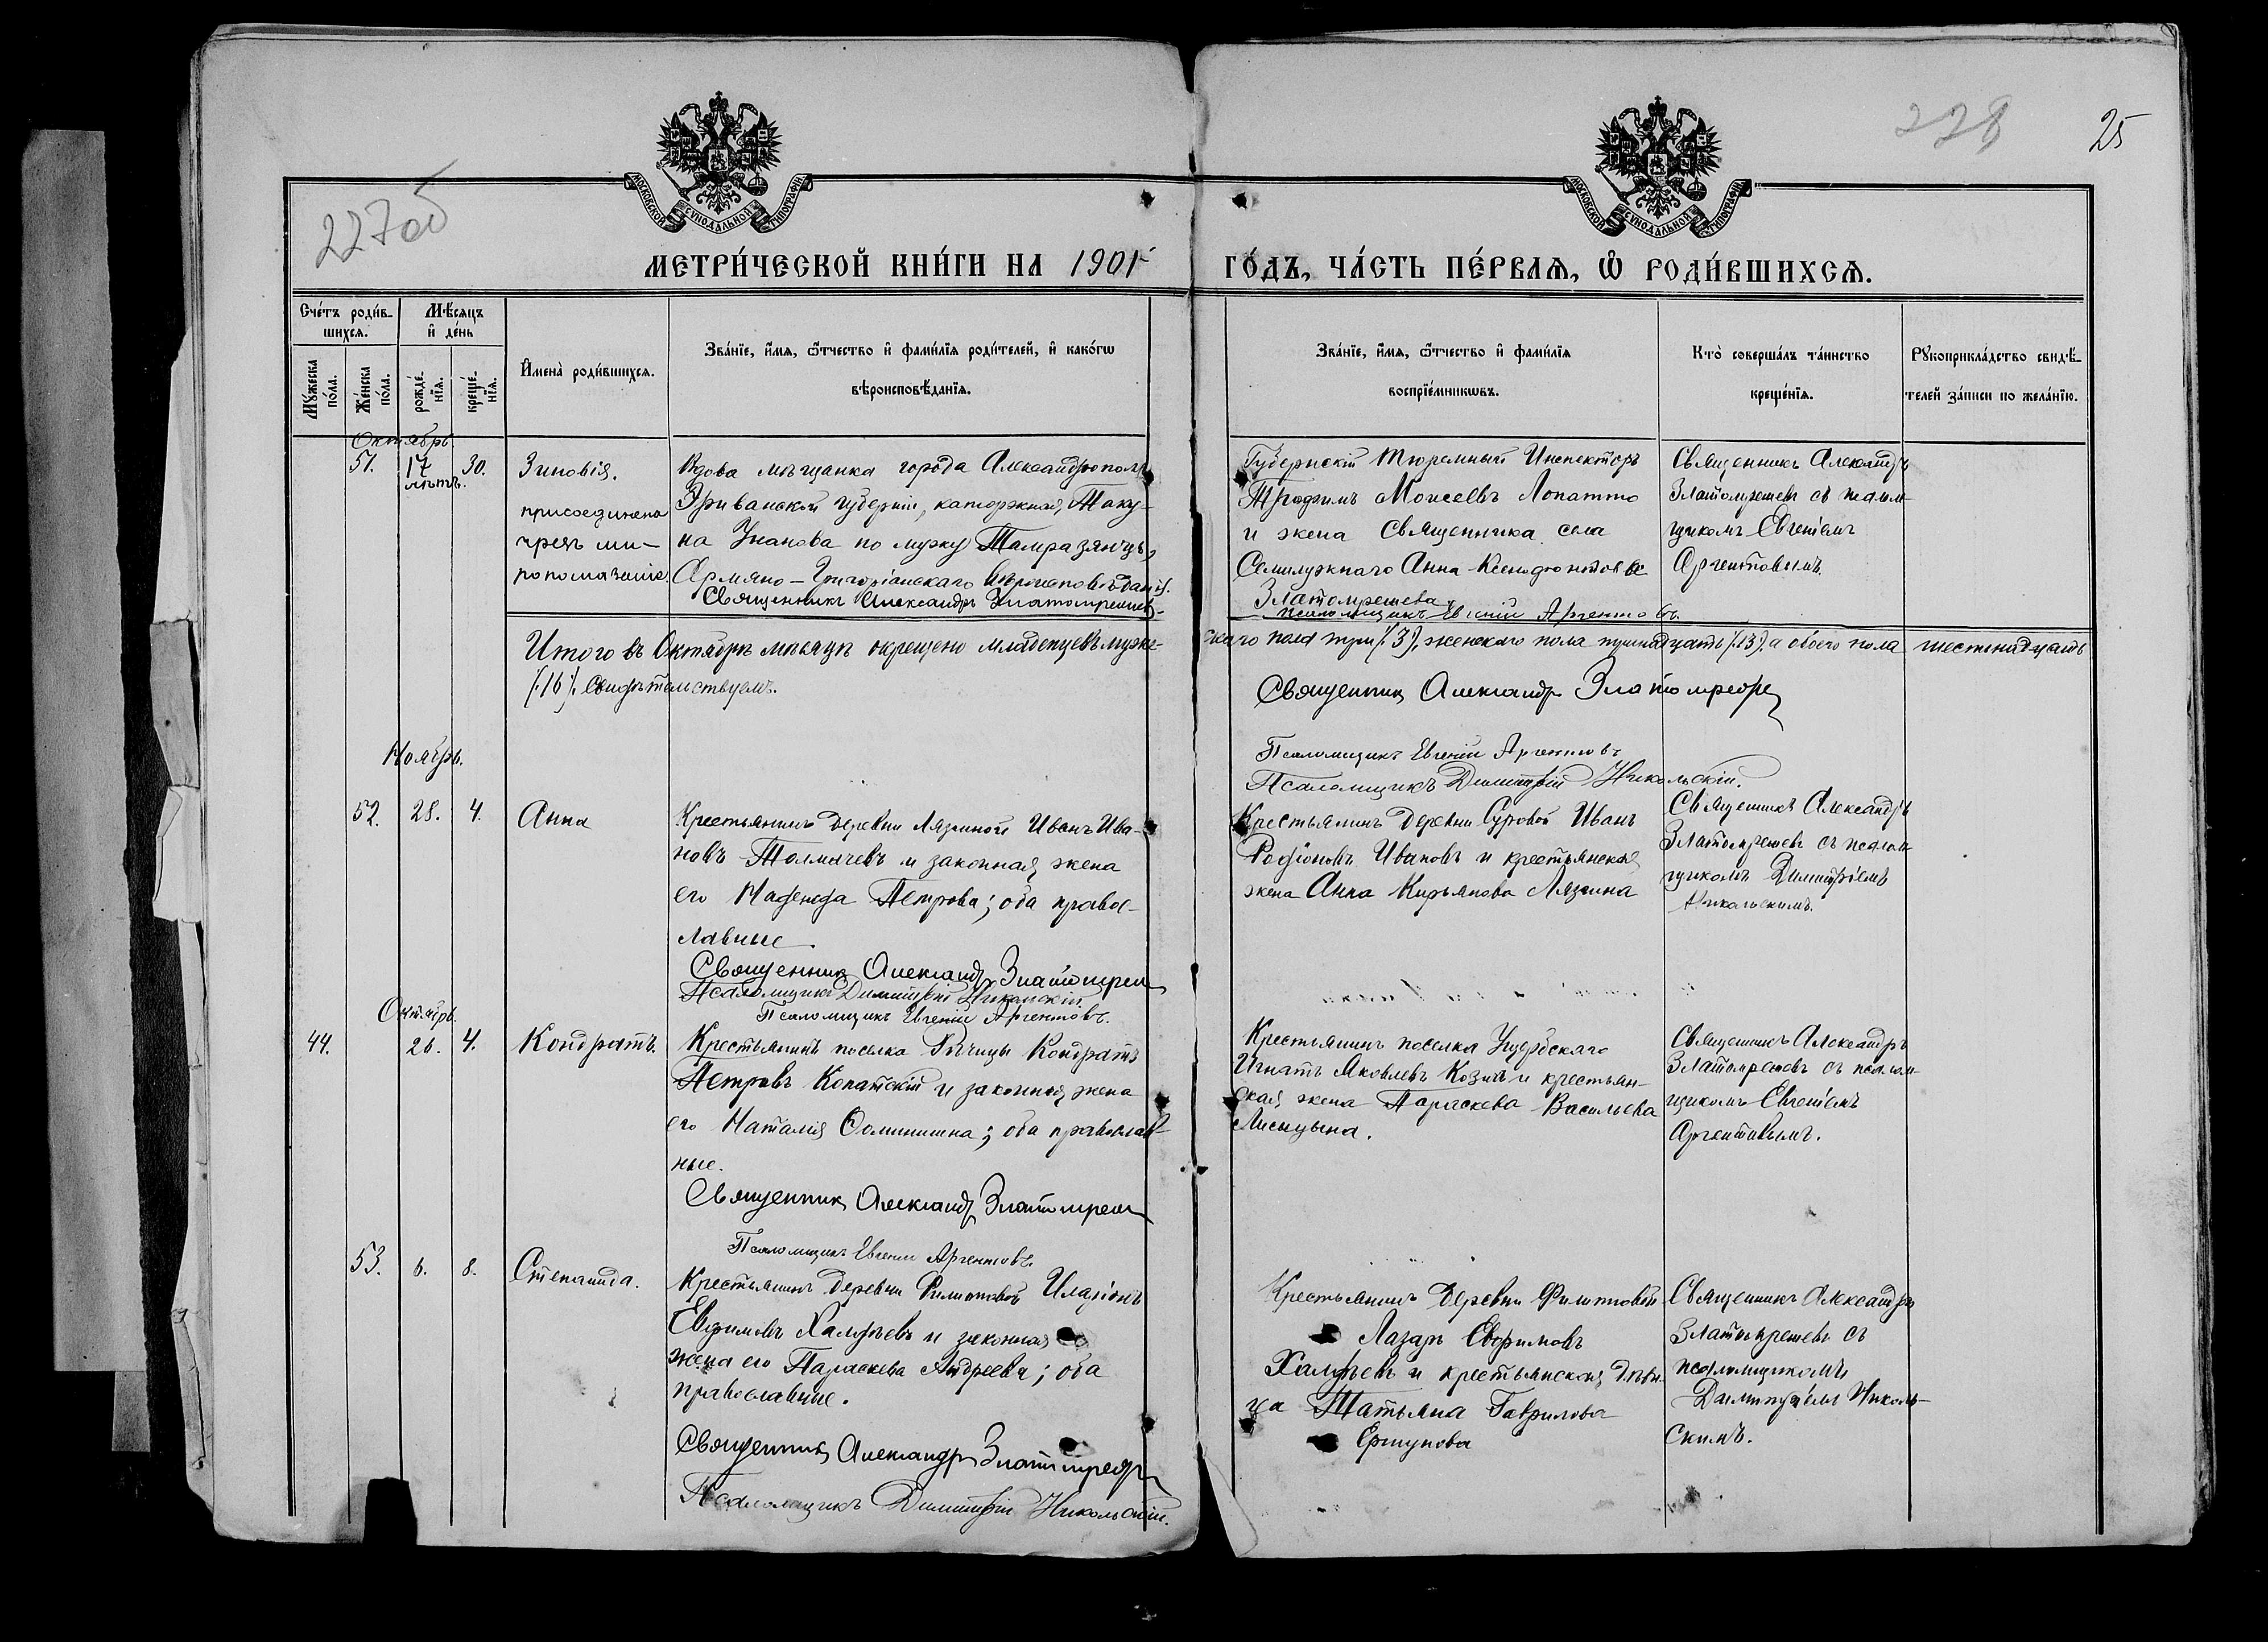 227об
228
25
МОСКОВСКОЙ СУНОДАЛЬНОЙ ТИПОГРАФІИ
МОСКОВСКОЙ СУНОДАЛЬНОЙ ТИПОГРАФІИ
МЕТРИ́ЧЕСКОЙ КНИ́ГИ НА 1901
ГО́ДЪ, ЧА́СТЬ ПЕ́РВАѦ, Ѽ РОДИ́ВШИХСѦ.
Сче́тъ роди́в-
шихсѧ.
Мѣ́сѧцъ
и҆ де́нь
Мꙋ́жеска
по́ла.
Же́нска
по́ла.
рожде́-
нїѧ.
креще́-
нїѧ.
И҆мена̀ роди́вшихсѧ.
Зва́нїе, и҆́мѧ, ѻ҆́тчество и҆ фами́лїѧ роди́телей, и҆ како́гѡ
вѣроисповѣ́данїѧ.
Зва́нїе, и҆́мѧ, ѻ҆́тчество и҆ фами́лїѧ
воспрїе́мникѡвъ.
Кто̀ соверша́лъ та́инство
креще́нїѧ.
Рꙋкоприкла́дство свидѣ́-
телей за́писи по жела́нїю.
Октябрь
51. 17 лѣтъ. 30.
Зиновія.
присоединена
чрезъ ми-
ропомазаніе
Вдова мѣщанка города Александрополя
Эриванской губерніи, каторжная, Таку-
на Унанова по мужу Тамразянцъ,
Армяно-Григоріанскаго вѣроисповѣданія.
Священникъ Александръ Златомрежевъ
Губернскій Тюремный Инспекторъ
Трофимъ Моисеевъ Лопатто
и жена Священника села
Семилужнаго Анна Ксенофонтова
Златомрежева
Псаломщикъ Евгеній Аргентовъ.
Священникъ Александръ
Златомрежевъ съ псалом-
щикомъ Евгеніемъ
Аргентовымъ.
Итого въ Октябрѣ мѣсяцѣ окрещено младенцевъ муже-
скаго пола три /:3:/, женскаго пола тринадцать /:13:/, а обоего пола шестнадцать
/:16:/. Свидѣтельствуемъ.
Священникъ Александръ Златомрежевъ
Псаломщикъ Евгеній Аргентовъ
Псаломщикъ Димитрій Никольскій.
Ноябрь.
52. 28. 4.
Анна
Крестьянинъ деревни Лязгиной Иванъ Ива-
новъ Толмачевъ и законная жена
его Надежда Петрова; оба право-
славные.
Священникъ Александръ Златомрежевъ
Псаломщикъ Димитрій Никольскій.
Псаломщикъ Евгеній Аргентовъ.
Крестьянинъ деревни Суровой Иванъ
Родіоновъ Ивановъ и крестьянская
жена Анна Кирьянова Лязгина
Священникъ Александръ
Златомрежевъ съ псалом-
щикомъ Димитріемъ
Никольскимъ.
Октябрь.
44. 26. 4.
Кондратъ.
Крестьянинъ поселка Кондратъ
Петровъ Копатскій и законная жена
его Наталія; оба православ-
ные.
Священникъ Александръ Златомрежевъ
Псаломщикъ Евгеній Аргентовъ.
Крестьянинъ поселка Ущербскаго
Игнатъ Яковлевъ Козикъ и крестьян-
ская жена Параскева Васильева
Лисицына.
Священникъ Александръ
Златомрежевъ съ псалом-
щикомъ Евгеніемъ
Аргентовымъ.
53. 6. 8.
Степанида.
Крестьянинъ деревни Филиповой Иларіонъ
Евфимовъ Халдѣевъ и законная
жена его Параскева Андреева; оба
православные.
Священникъ Александръ Златомрежевъ
Псаломщикъ Димитрій Никольскій.
Крестьянинъ деревни Филиповой
Лазарь Евфимовъ
Халдѣевъ и крестьянская дѣви-
ца Татьяна Гаврилова
Ершукова
Священникъ Александръ
Златомрежевъ съ
псаломщикомъ
Димитріемъ Николь-
скимъ.